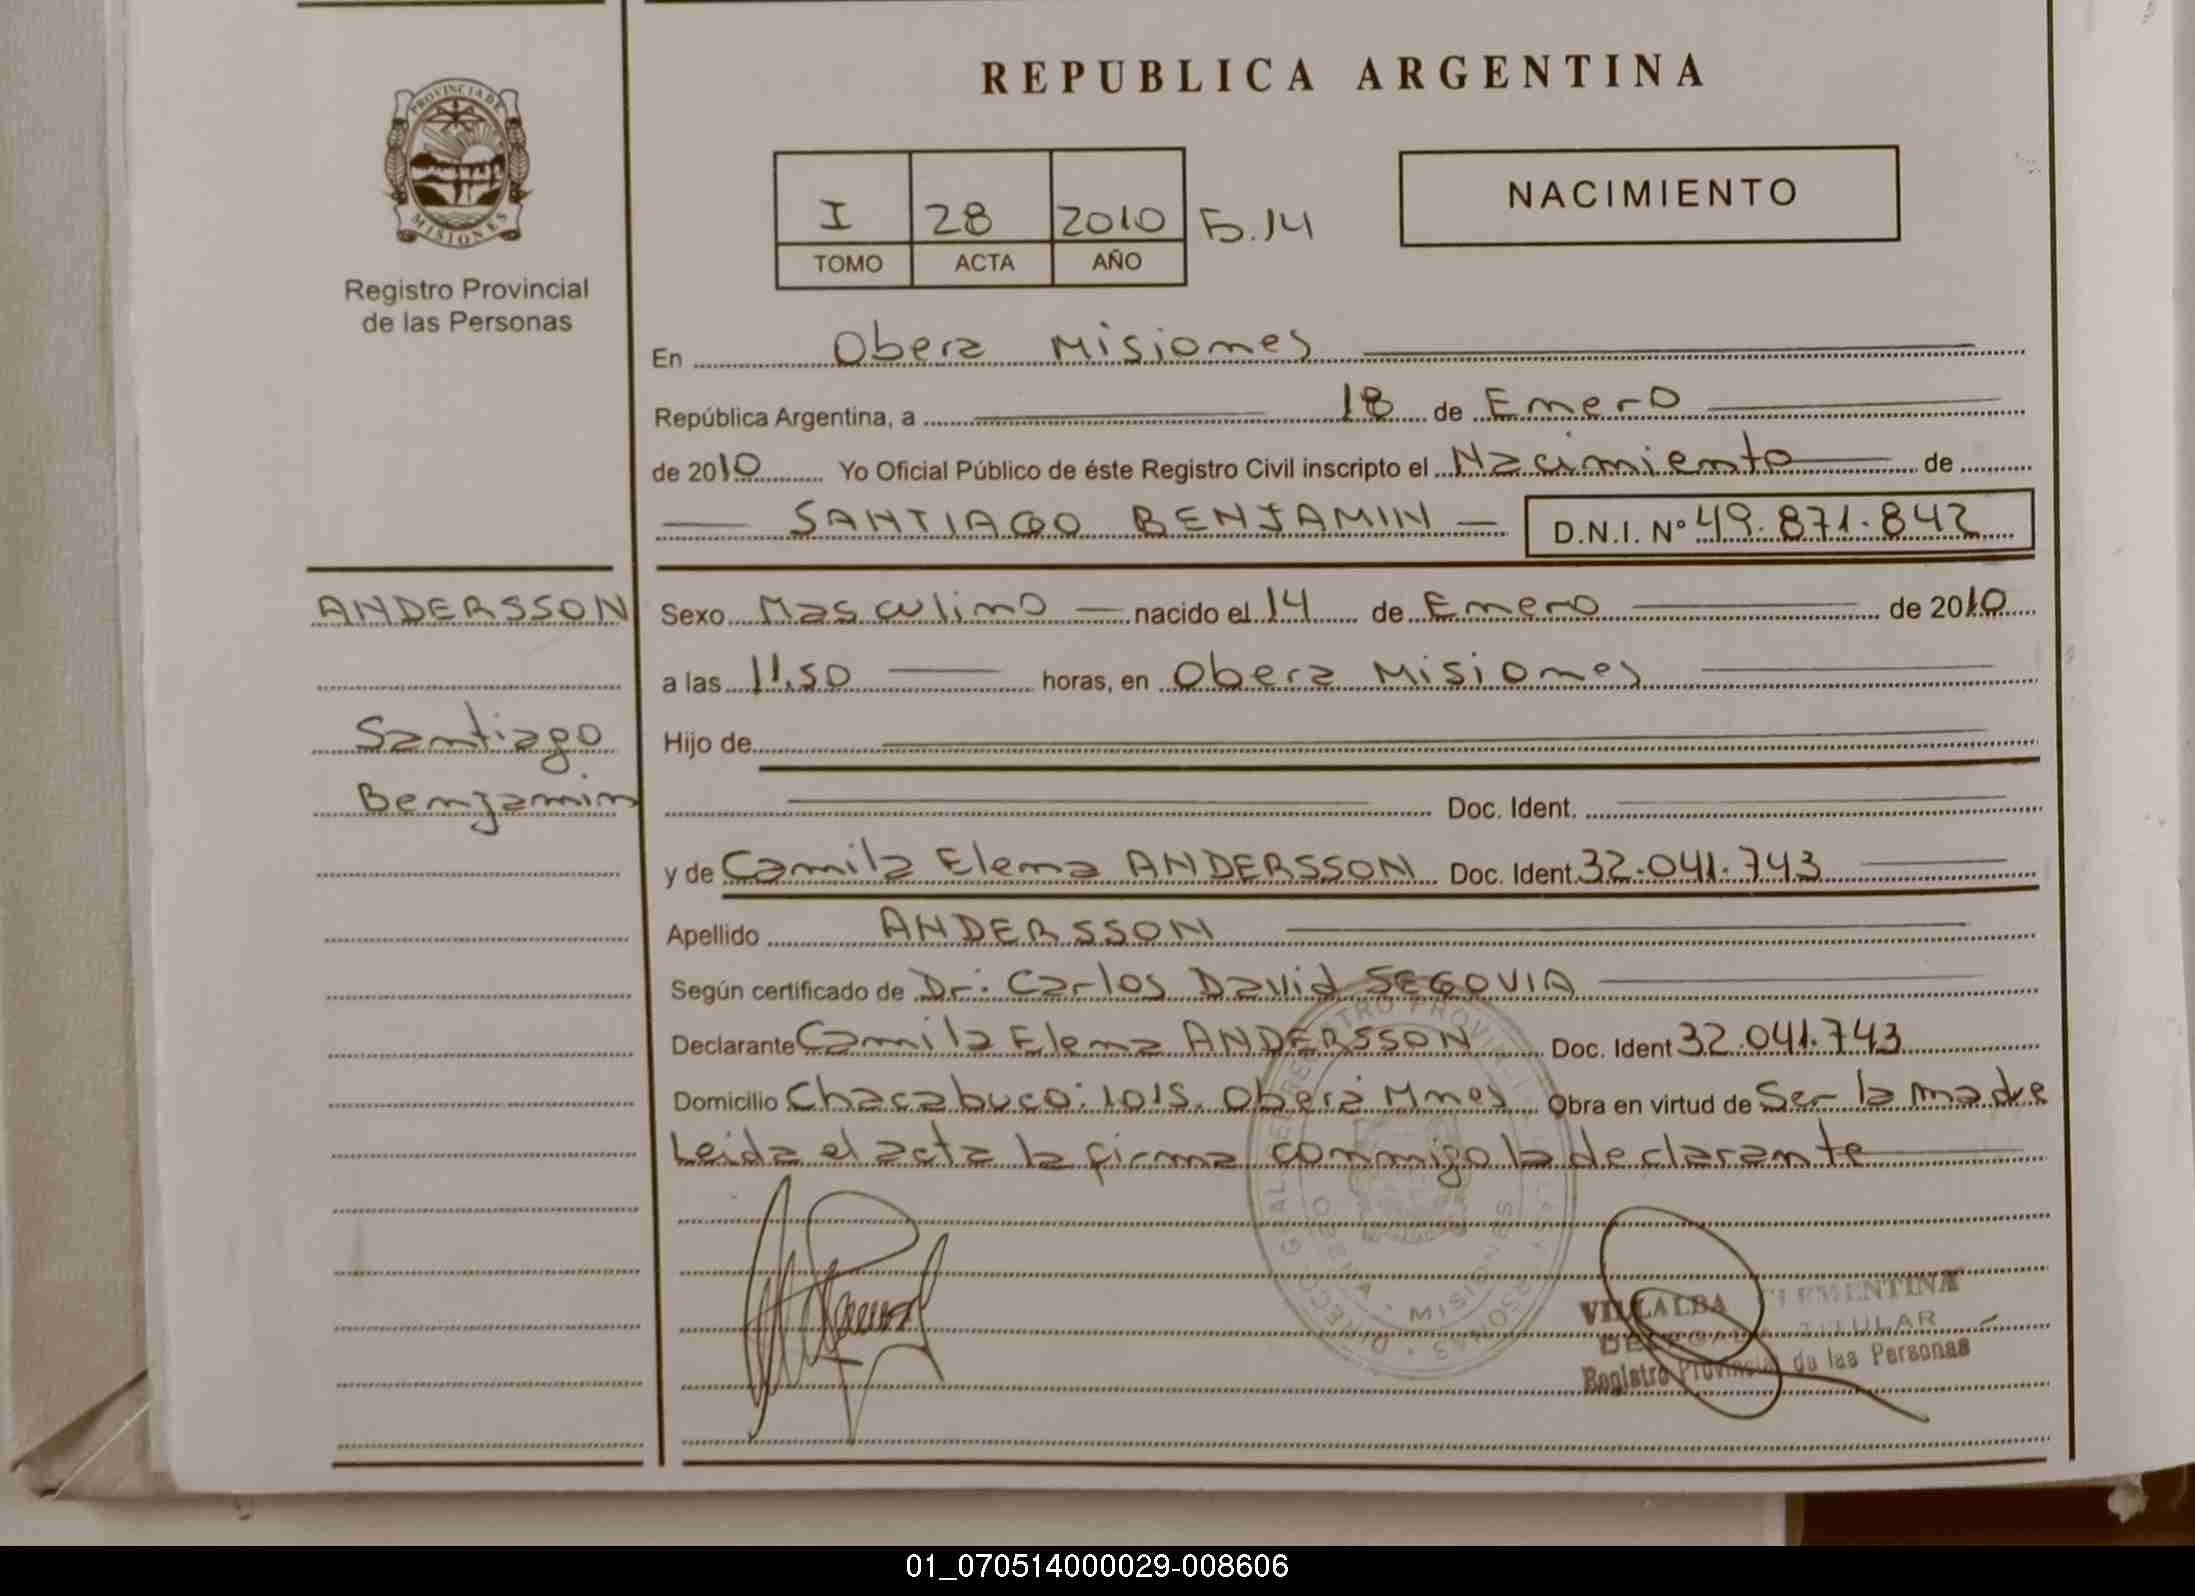 REPUBLICA ARGENTINA
PROVINCIA DE
MISIONES
Registro Provincial
de las Personas
I 28 2010 Fo.14
TOMO ACTA AÑO
NACIMIENTO
En Obera Misiones
República Argentina, a 18 de Enero
de 2010 Yo Oficial Público de éste Registro Civil inscripto el Nacimiento de
SANTIAGO BENJAMIN D.N.I. Nº 49.871.842
ANDERSSON
Santiago
Benjamin
Sexo Masculino nacido el 14 de Enero de 2010
a las 11.50 horas, en Obera Misiones
Hijo de
Doc. Ident.
y de Camila Elena ANDERSSON Doc. Ident. 32.041.743
Apellido ANDERSSON
Según certificado de Dr: Carlos David SEGOVIA
Declarante Camila Elena ANDERSSON Doc. Ident 32.041.743
Domicilio Chacabuco: 1015. Oberá Mnes Obra en virtud de Ser la madre
Leida el acta la firma conmigo la declarante
MISIONES
VILLALBA CLEMENTINA
TITULAR
Registro Provincial de las Personas
01_070514000029-008606